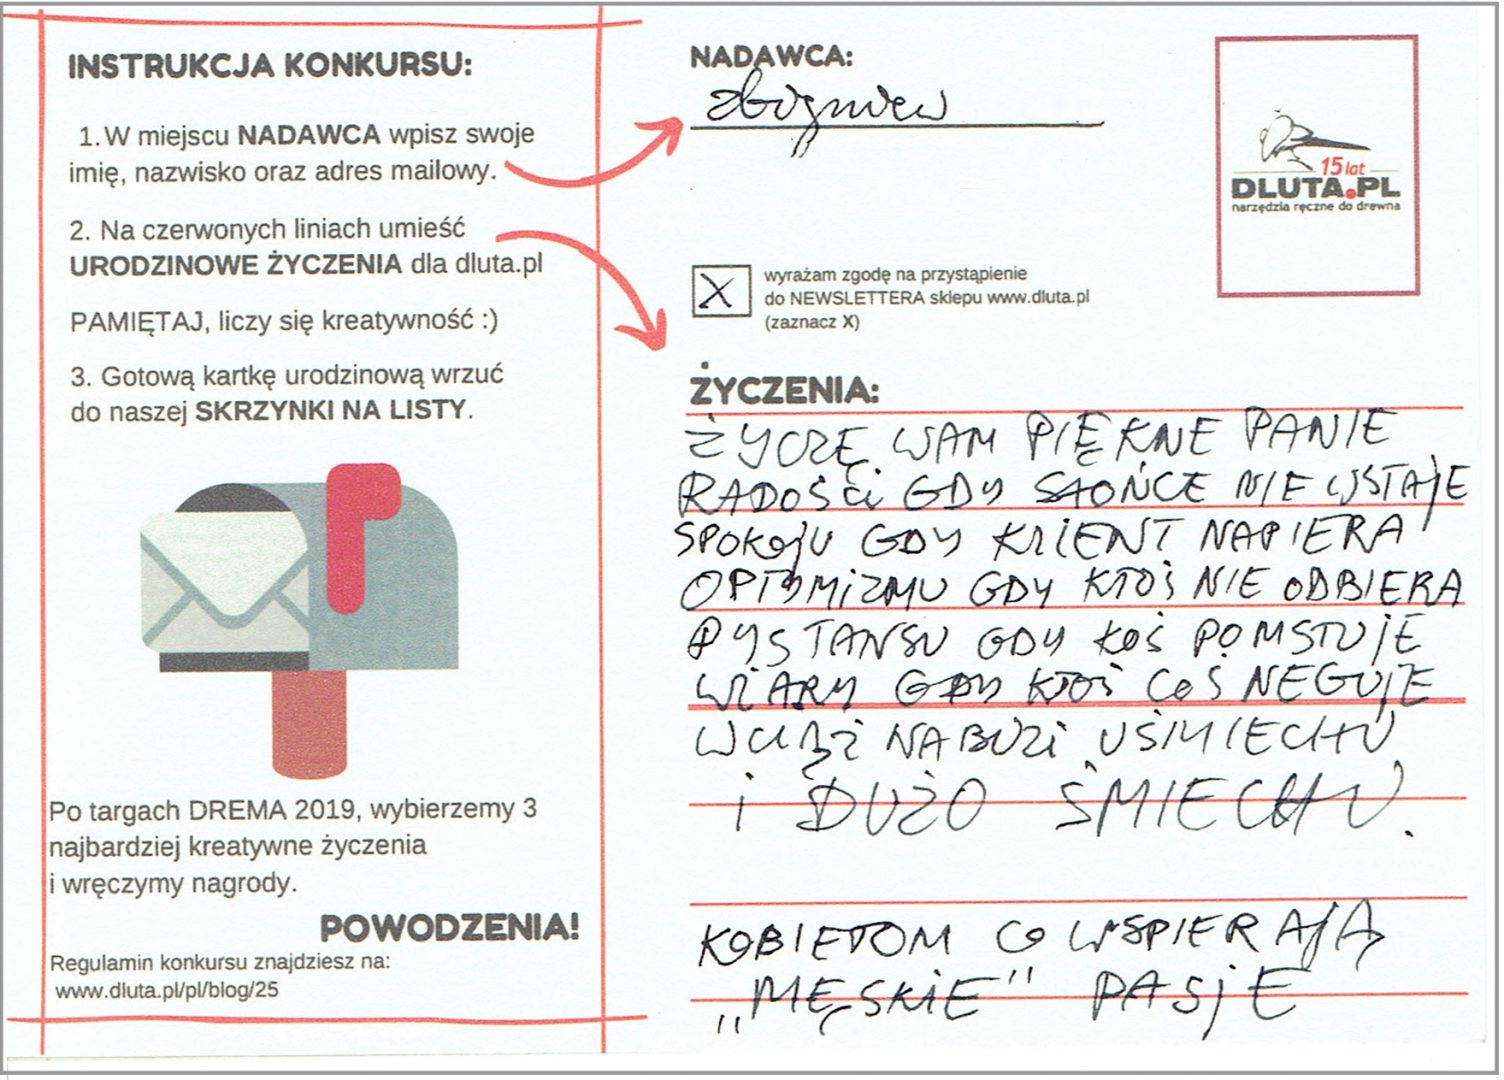 INSTRUKCJA KONKURSU:
1. W miejscu NADAWCA wpisz swoje
imię, nazwisko oraz adres mailowy.
2. Na czerwonych liniach umieść
URODZINOWE ŻYCZENIA dla dluta.pl
PAMIĘTAJ, liczy się kreatywność :)
3. Gotową kartkę urodzinową wrzuć
do naszej SKRZYNKI NA LISTY.
Po targach DREMA 2019, wybierzemy 3
najbardziej kreatywne życzenia
i wręczymy nagrody.
POWODZENIA!
Regulamin konkursu znajdziesz na:
www.dluta.pl/pl/blog/25
NADAWCA:
Zbigniew
15 lat
DLUTA.PL
narzędzia ręczne do drewna
X
wyrażam zgodę na przystąpienie
do NEWSLETTERA sklepu www.dluta.pl
(zaznacz X)
ŻYCZENIA:
ŻYCZĘ WAM PIĘKNE PANIE
RADOŚCi GDY SŁOŃCE NIE WSTAjE
SPOKOjU GDY KLIENT NAPIERA
OPTYMiZMU GDY KTOŚ NIE ODBIERA
DYSTANSU GDY KOŚ POMSTUjE
WiARY GDY KTOŚ COŚ NEGUjE
NA BUZI UŚMIECHU
i DUŻO ŚMIECHU.
KOBIETOM CO WSPIERAjĄ
„MĘSKiE" PASjE